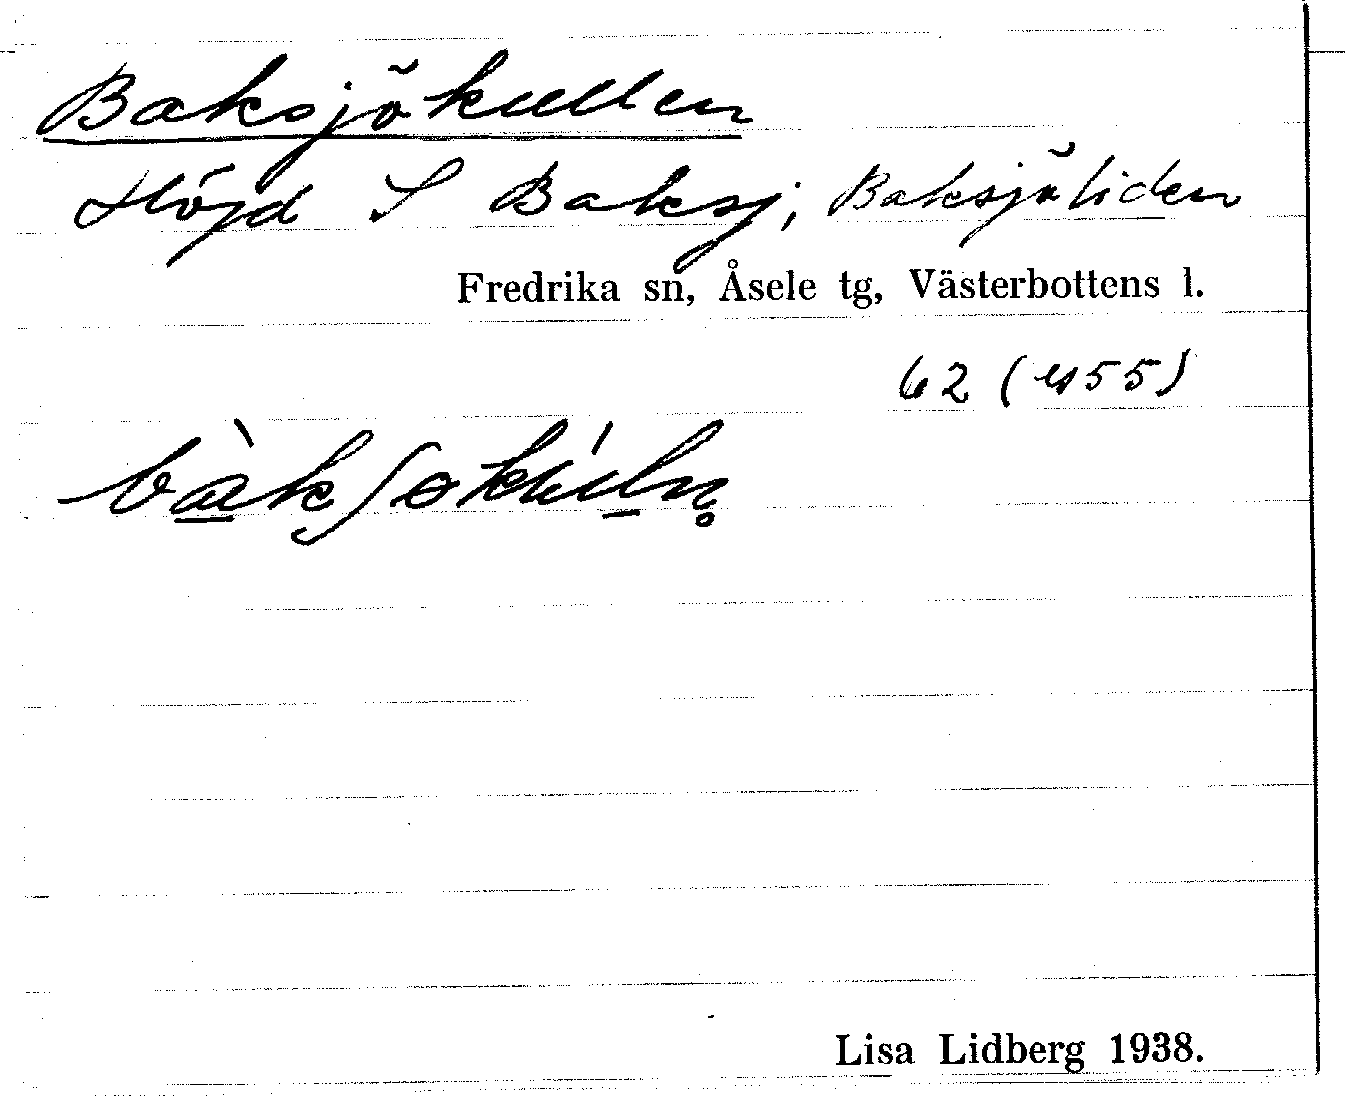 Baksjökullen
Höjd S Baksj, Baksjöliden
Fredrika sn, Åsele tg, Västerbottens l.
62 (455)
Lisa Lidberg 1938.